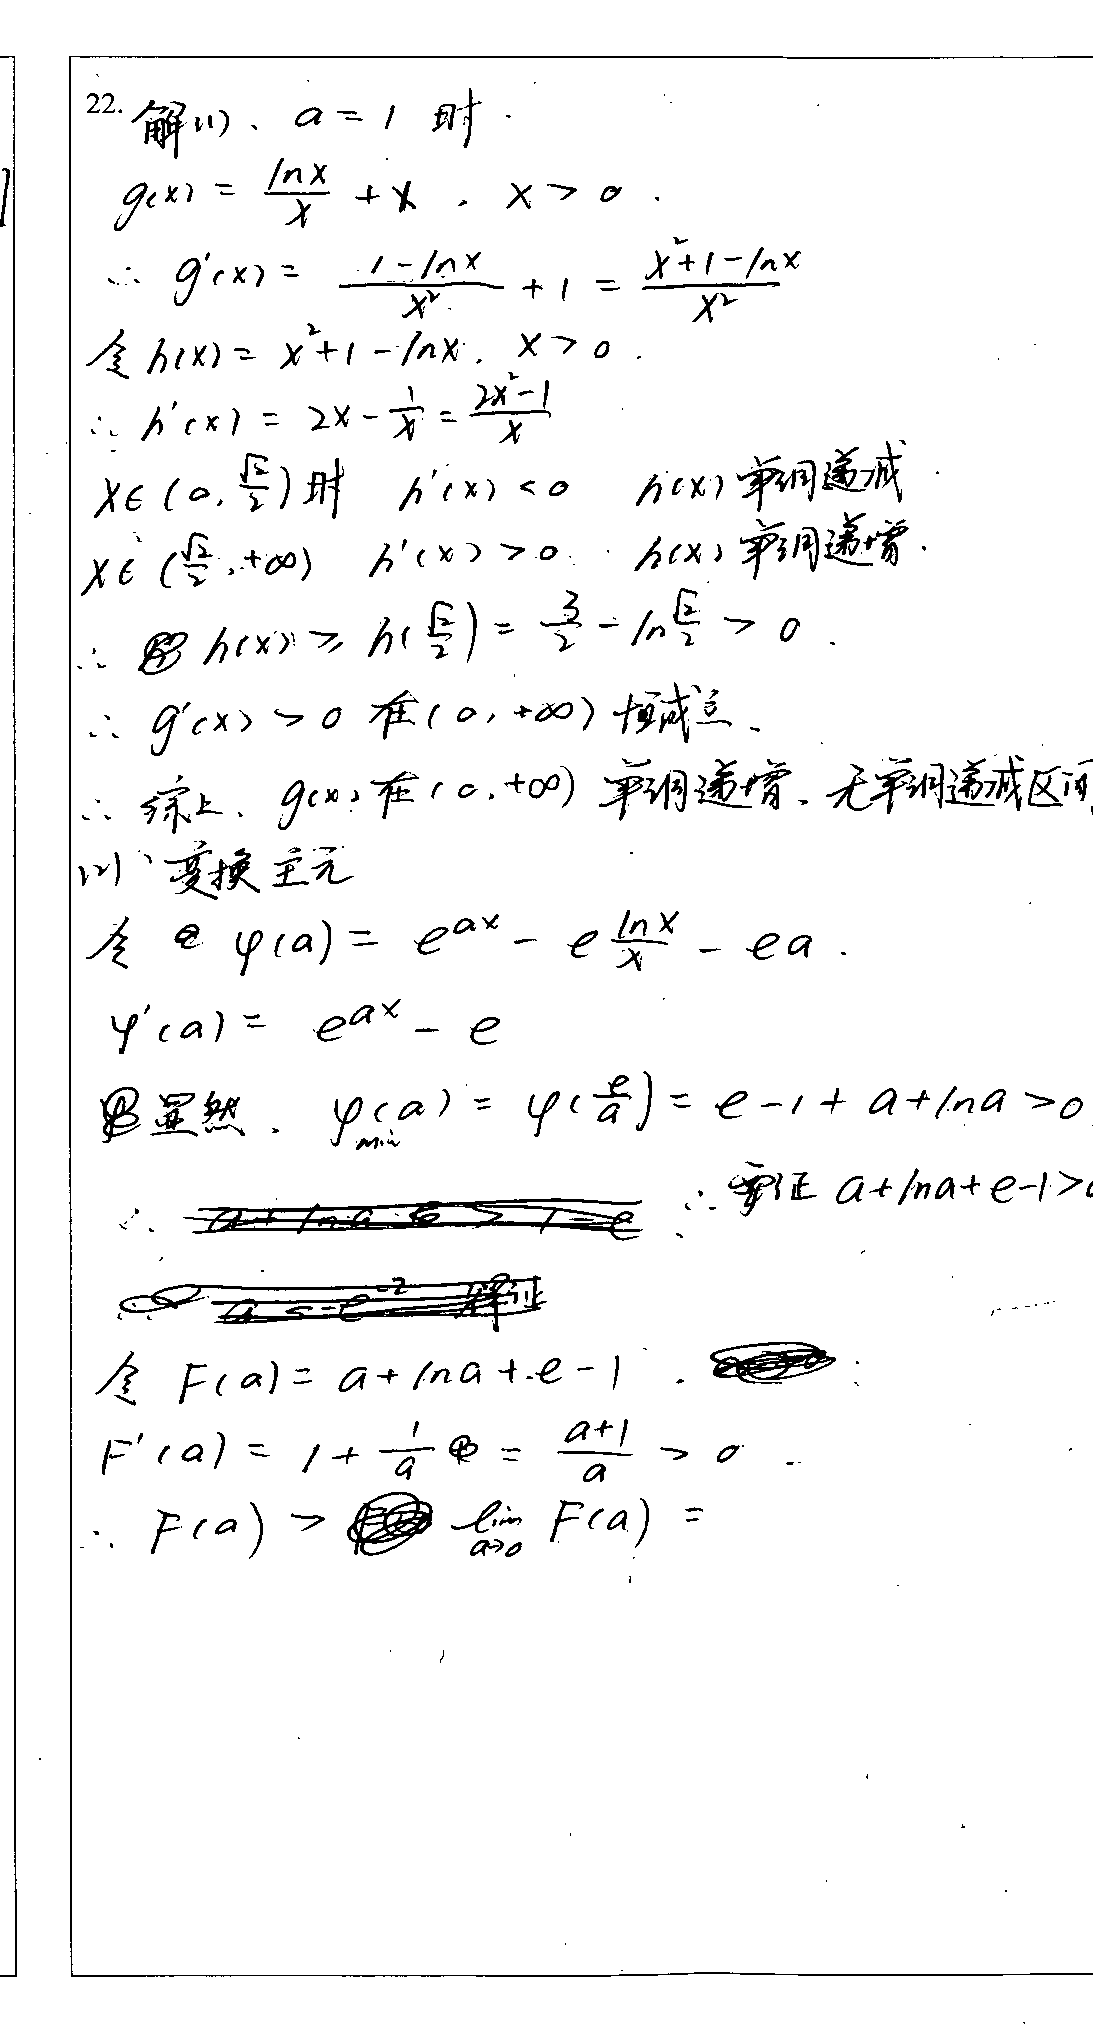 22. 解(1)、a = 1 时.
g(x) = lnx/x + x . x > 0 .
∴ g'(x) = (1-lnx)/x² + 1 = (x²+1-lnx)/x²
令 h(x) = x²+1-lnx. x > 0 .
∴ h'(x) = 2x - 1/x = (2x²-1)/x
x∈(0, √2/2)时 h'(x) < 0 h(x)单调递减
x∈(√2/2, +∞) h'(x) > 0. h(x)单调递增.
∴ h(x) ≥ h(√2/2) = 3/2 - ln√2/2 > 0 .
∴ g'(x) > 0 在(0, +∞)恒成立、
∴ 综上、g(x)在(0, +∞)单调递增、无单调递减区间
(2)、变换主元
令 φ(a) = e^{ax} - e lnx/x - ea .
φ'(a) = e^{ax} - e
显然、φ(a)min = φ(e/a) = e-1+a+lna>0
∴ ∴ 要证 a+lna+e-1>0
令 F(a) = a+lna+e-1 .
F'(a) = 1 + 1/a = (a+1)/a > 0 .
∴ F(a) > lim a→0 F(a) =